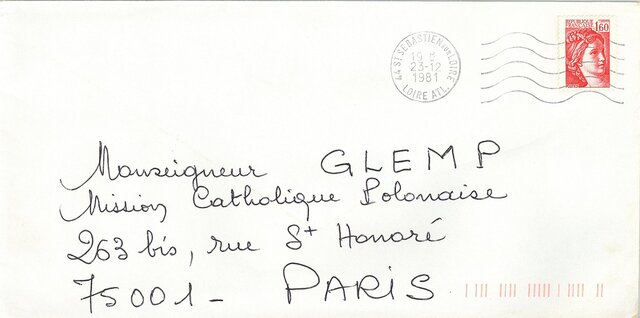 44 ST SEBASTIEN sur LOIRE
19
23-12
1981
LOIRE ATL.
1,60
Monseigneur GLEMP
Mission Catholique Polonaise
263 bis, rue St Honoré
75001 - PARIS